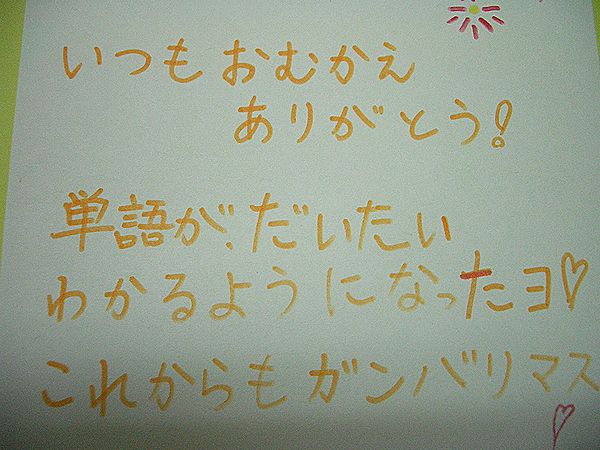 いつもおむかえ
ありがとう!
単語が、だいたい
わかるようになったヨ♡
これからもガンバリマス
♡